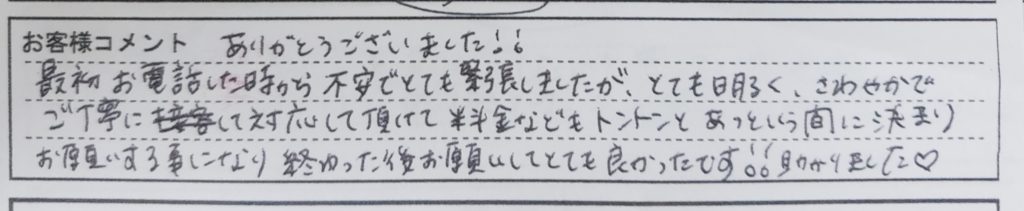 お客様コメント ありがとうございました!!
最初お電話した時から不安でとても緊張しましたが、とても明るく、さわやかで
ご丁寧に接客して対応して頂けて料金などもトントンとあっという間に決まり
お願いする事になり終わった後お願いしてとても良かったです!!助かりました♡